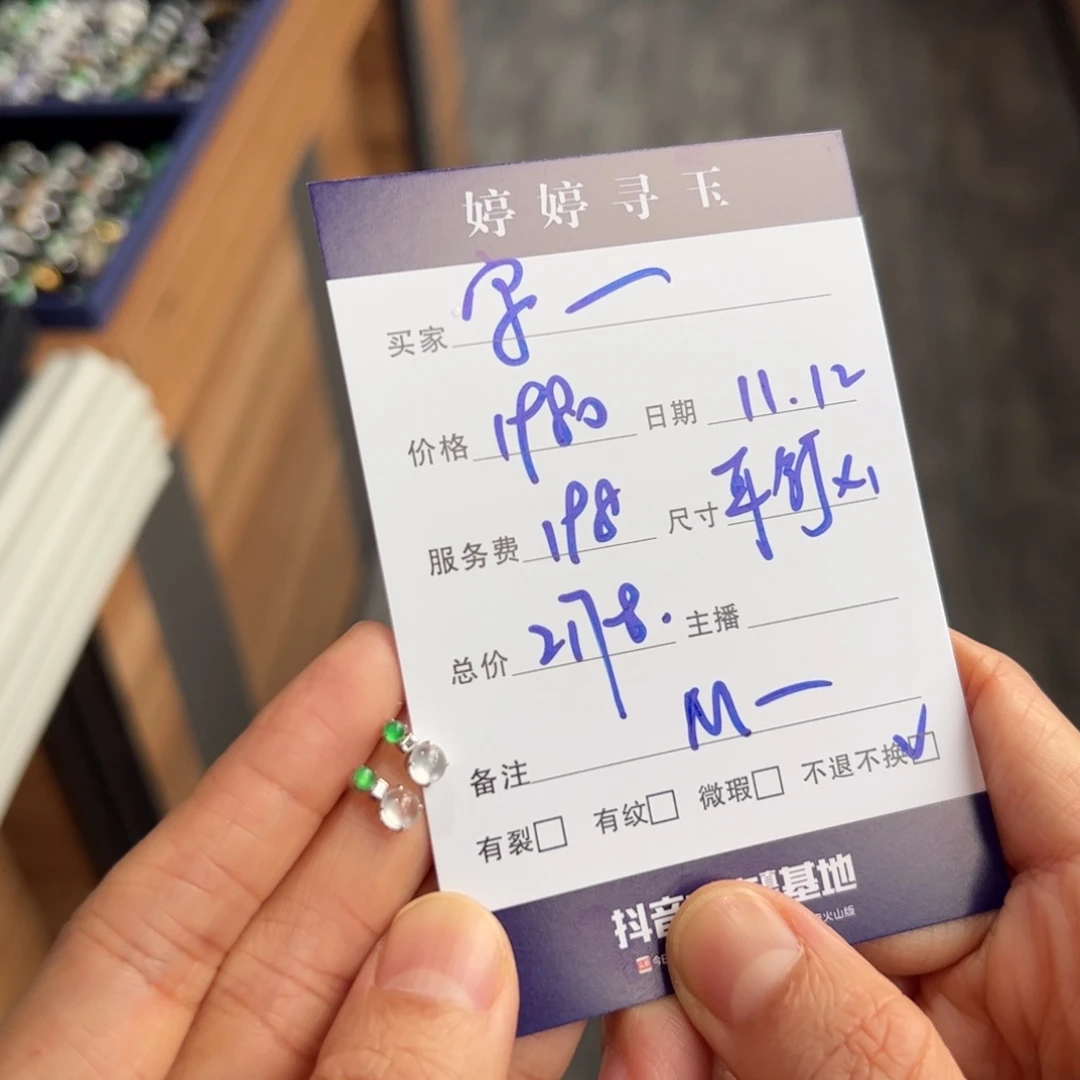 婷婷寻玉
买家 字一
价格 1980 日期 11.12
服务费 198 尺寸 耳钉x1
总价 2178. 主播
备注 M一
有裂 有纹 微瑕 不退不换 ✓
抖音 基地
今日 音火山版